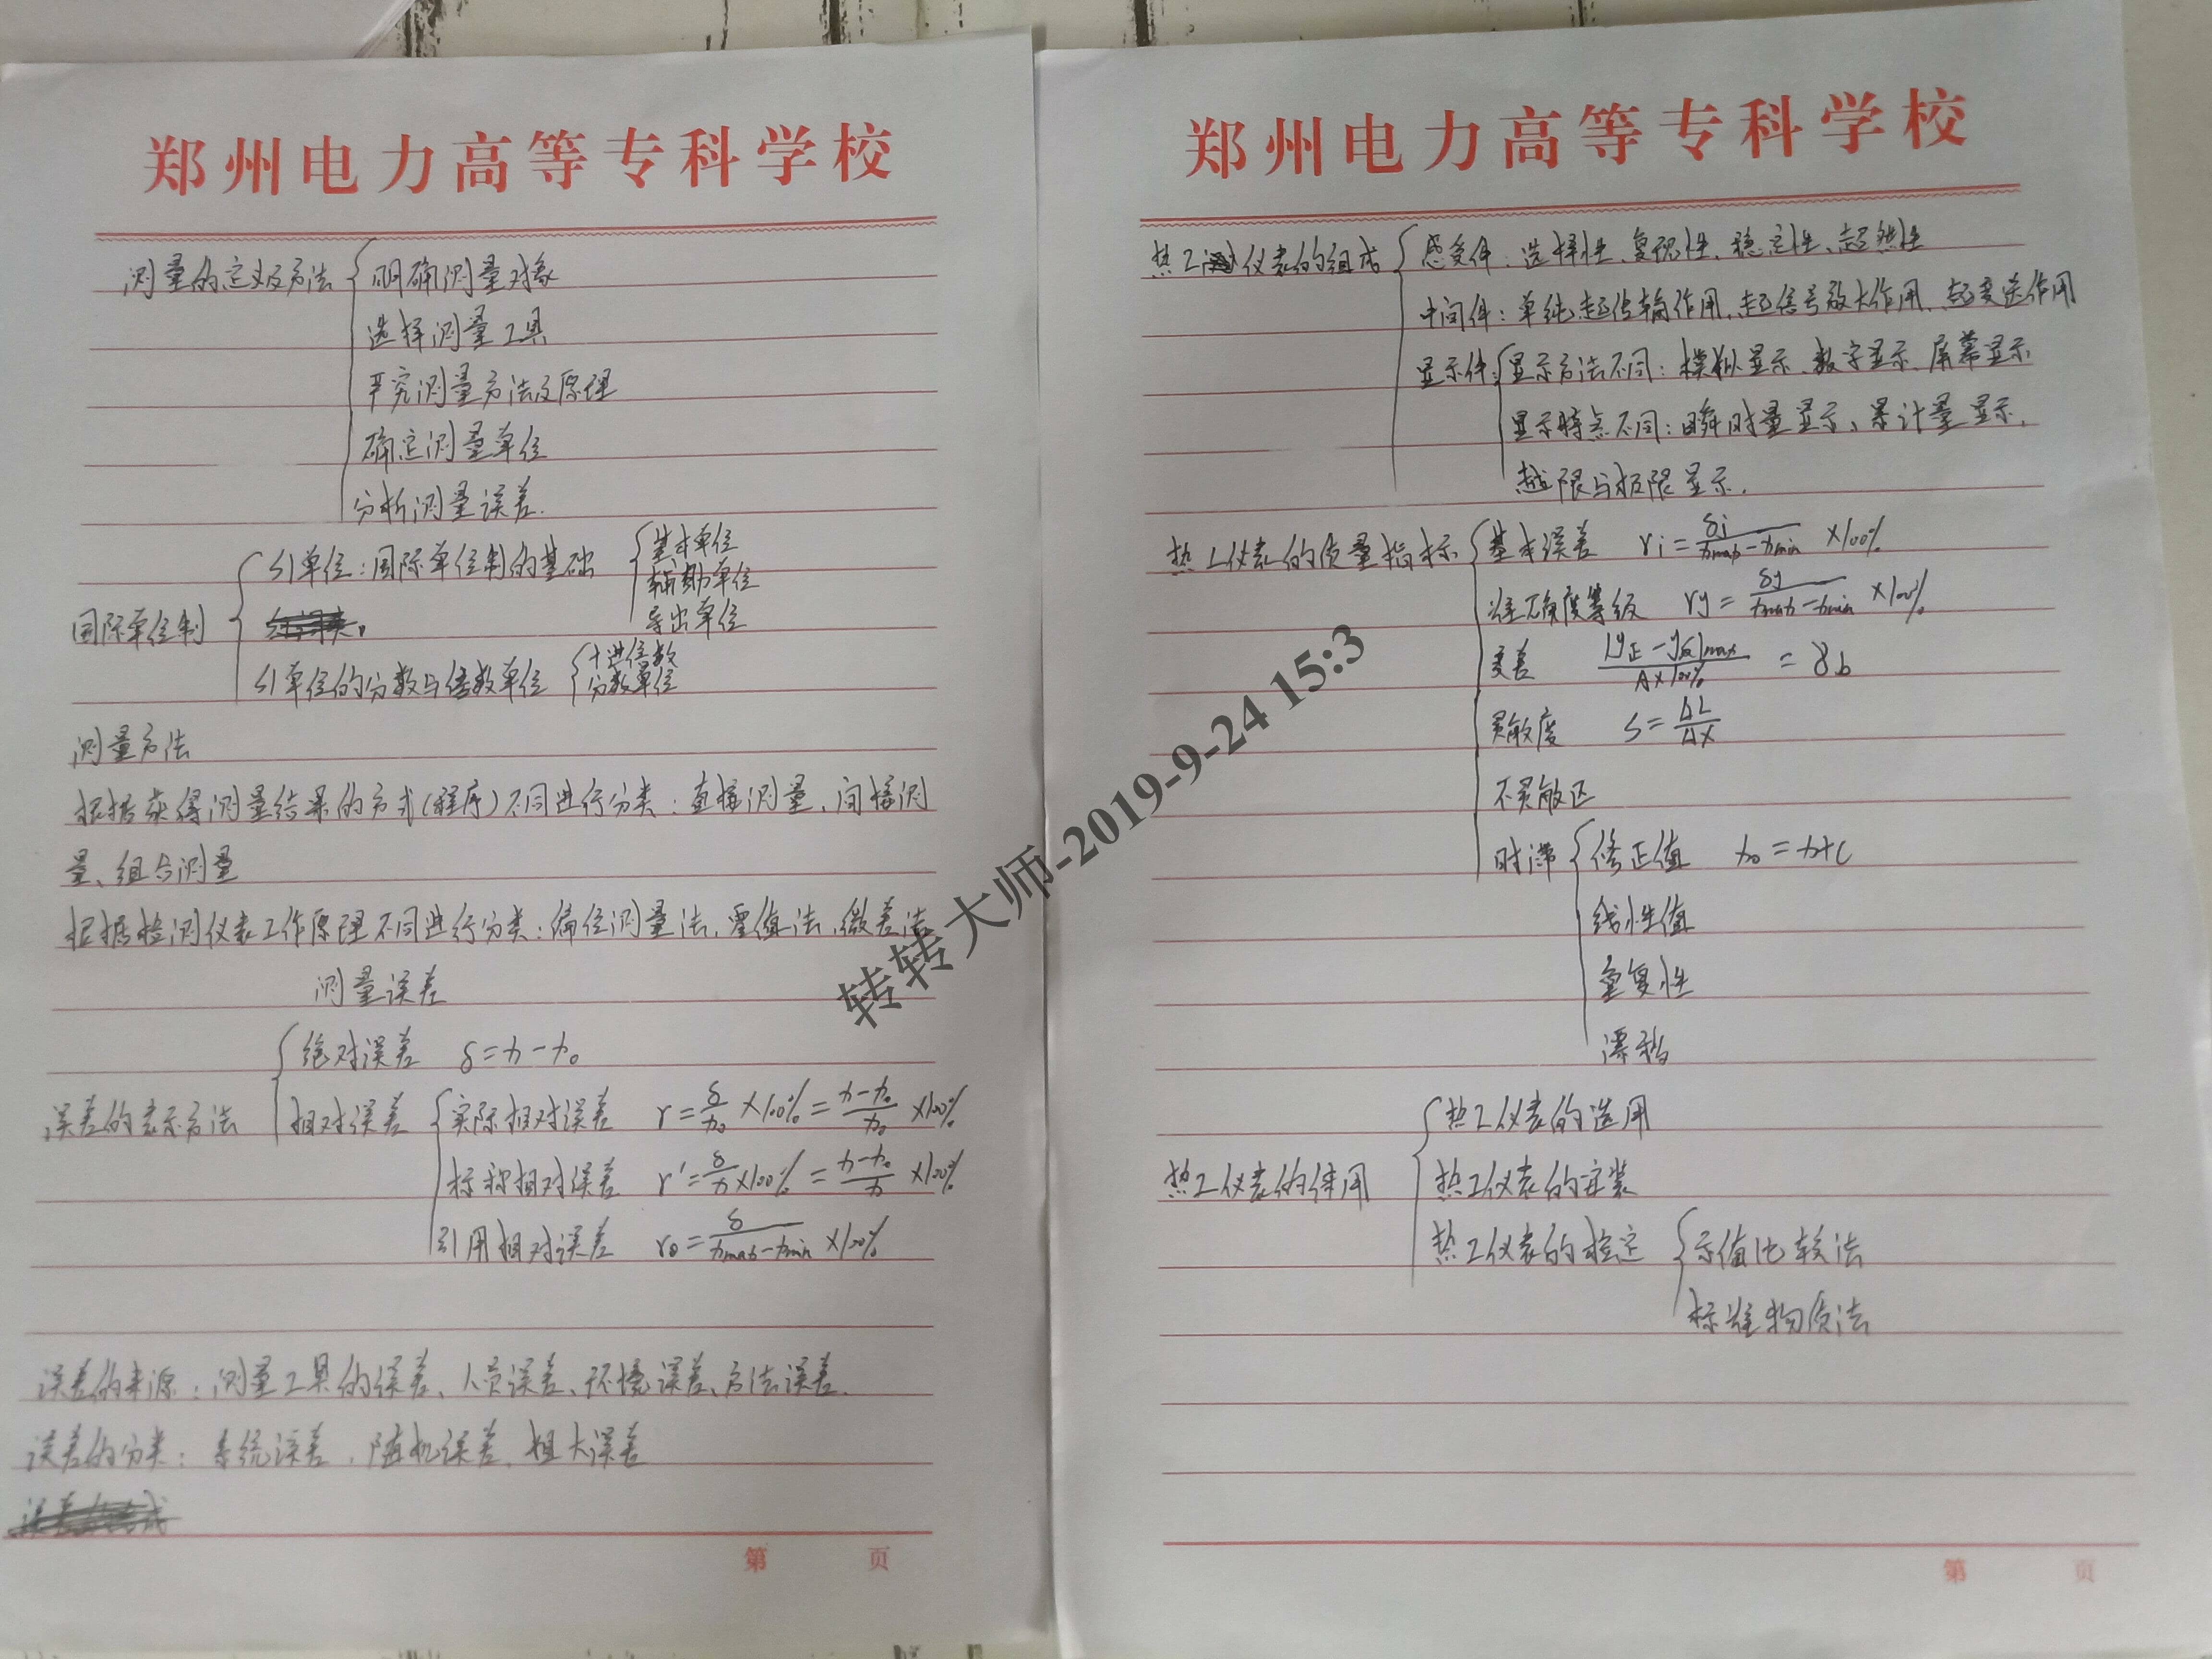 郑州电力高等专科学校
测量的定义及方法 明确测量对象
选择测量工具
研究测量方法及原理
确定测量单位
分析测量误差.
SI单位：国际单位制的基础 基本单位
辅助单位
导出单位
国际单位制
SI单位的分数与倍数单位 十进倍数
分数单位
测量方法
根据获得测量结果的方式(程序)不同进行分类：直接测量、间接测
量、组合测量
根据检测仪表工作原理不同进行分类：偏位测量法，零值法，微差法
测量误差
绝对误差 δ=x-x₀
误差的表示方法 相对误差 实际相对误差 r=δ/x₀×100%=(x-x₀)/x₀×100%
标称相对误差 r'=δ/x×100%=(x-x₀)/x×100%
引用相对误差 r₀=δ/(xmax-xmin)×100%
误差的来源：测量工具的误差、人员误差、环境误差、方法误差.
误差的分类：系统误差，随机误差，粗大误差
第 页
郑州电力高等专科学校
热工仪表的组成 感受件：选择性、复现性、稳定性、超然性
中间件：单纯起传输作用，起信号放大作用，起变送作用
显示件：显示方法不同：模拟显示、数字显示、屏幕显示
显示特点不同：瞬时量显示、累计量显示，
越限与极限显示.
热工仪表的质量指标 基本误差 ri=δj/(xmax-xmin)×100%
准确度等级 ry=δy/(xmax-xmin)×100%
变差 |y正-y反|max/A×100% =γb
灵敏度 S=ΔL/ΔX
不灵敏区
时滞 修正值 x₀=x+C
线性值
重复性
漂移
热工仪表的选用
热工仪表的使用 热工仪表的安装
热工仪表的检定 示值比较法
标准物质法
第 页
转转大师-2019-9-24 15:3